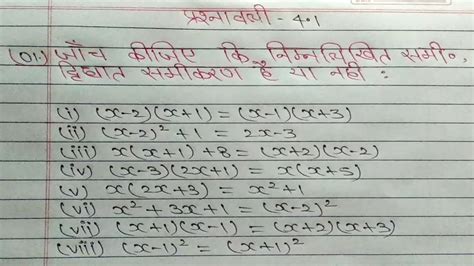 प्रश्नावली - 4.1
(01.) जाँच कीजिए कि निम्नलिखित समी०,
द्विघात समीकरण है या नहीं :
(i) (x-2)(x+1) = (x-1)(x+3)
(ii) (x-2)² + 1 = 2x-3
(iii) x(x+1) + 8 = (x+2)(x-2)
(iv) (x-3)(2x+1) = x(x+5)
(v) x(2x+3) = x²+1
(vi) x² + 3x + 1 = (x-2)²
(vii) (x+1)(x-1) = (x+2)(x+3)
(viii) (x-1)² = (x+1)²